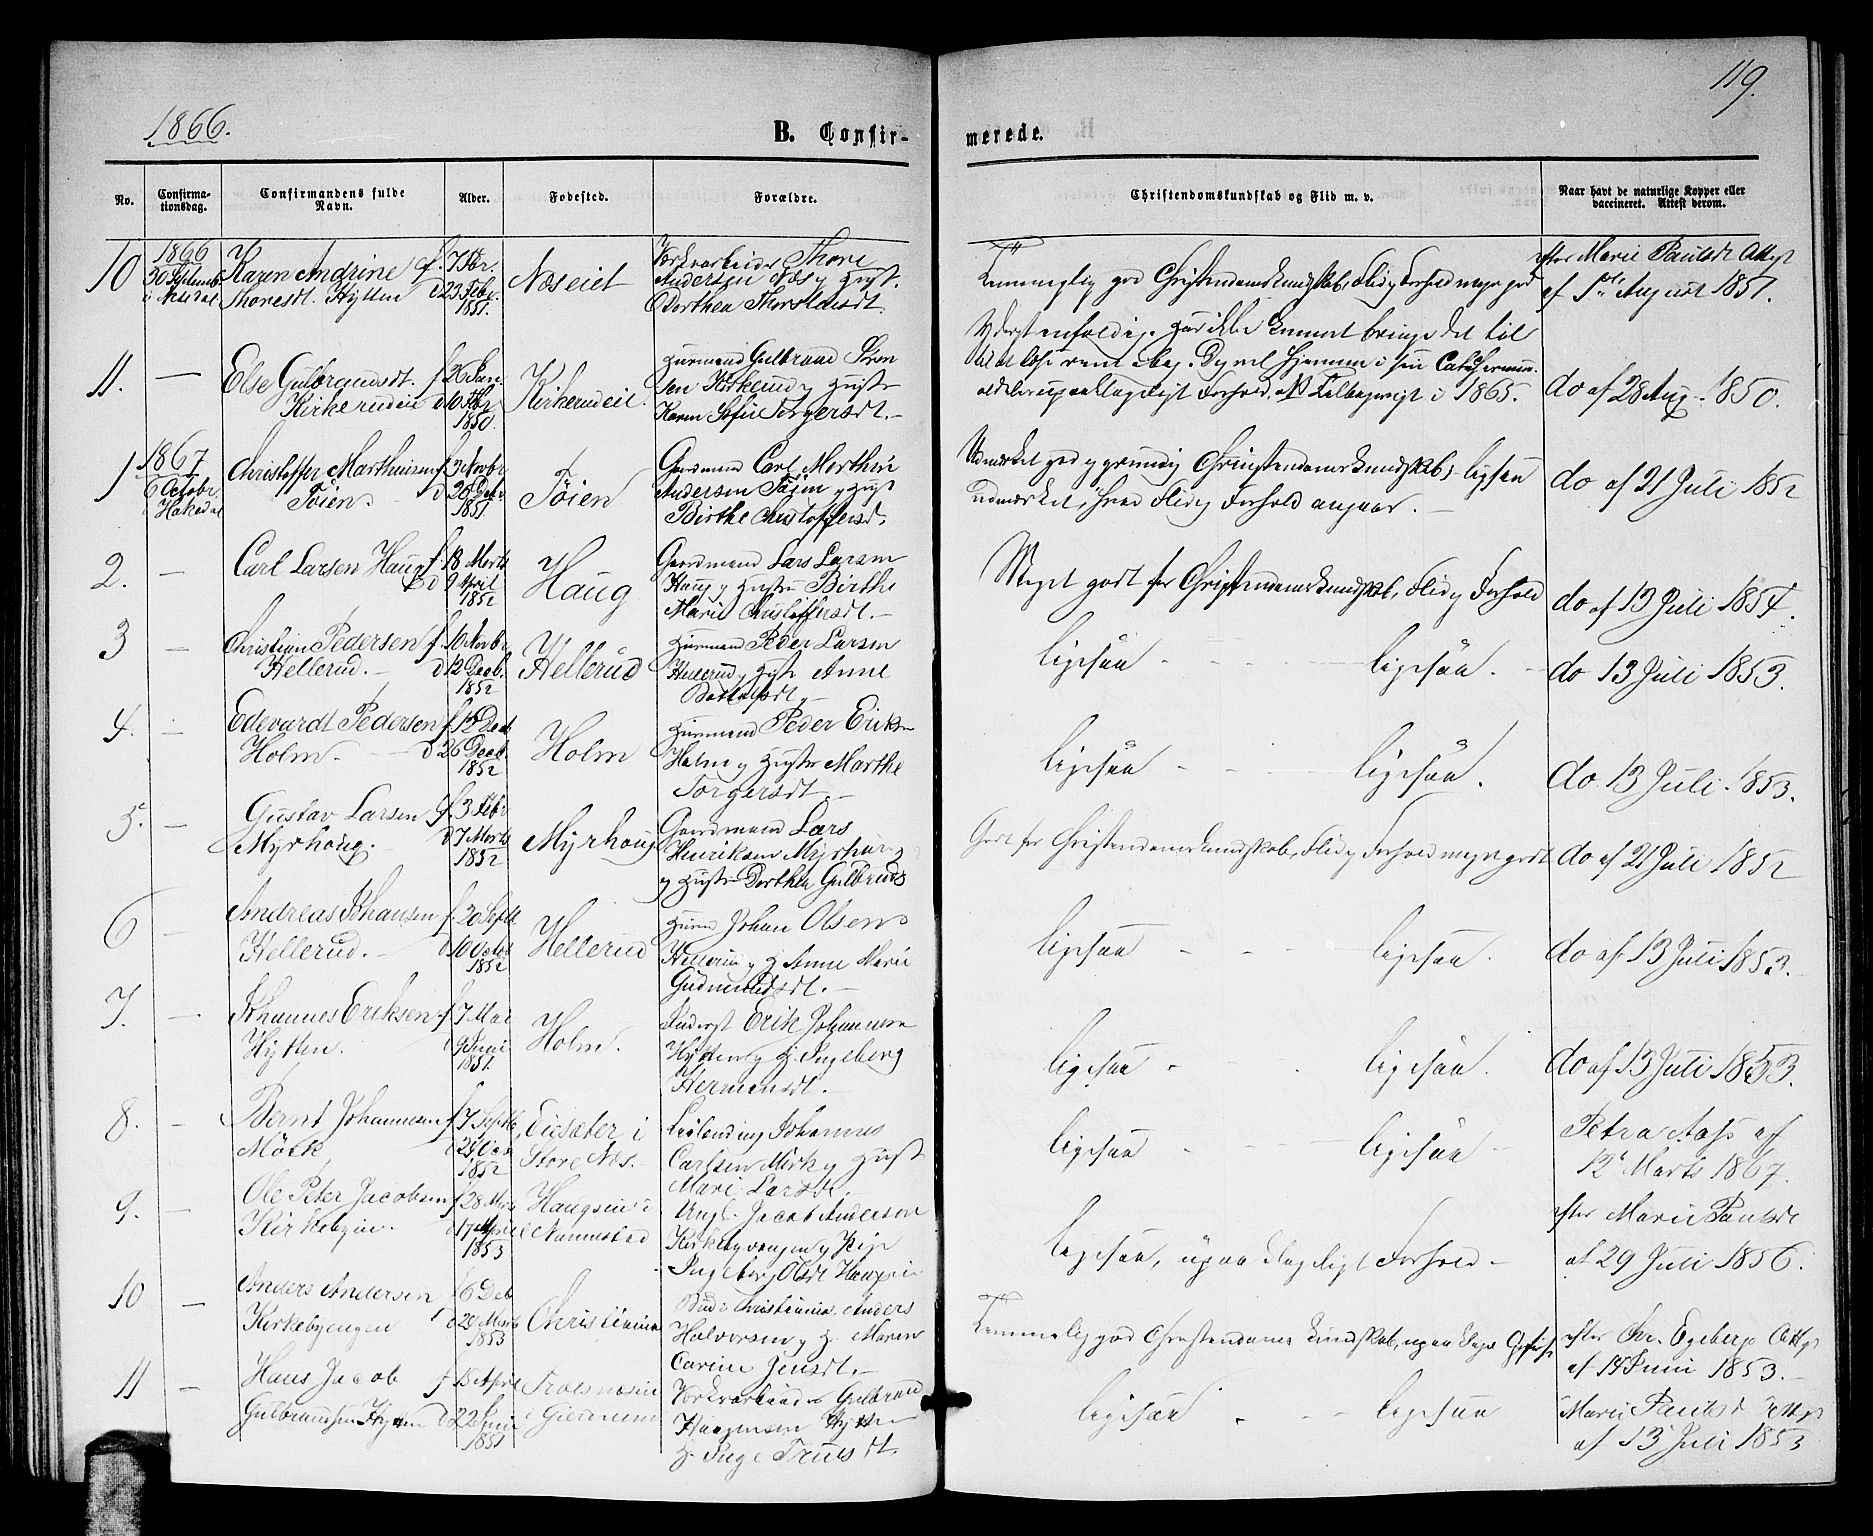 1866.
119.
B. Confir-
merede.
No.
Confirma-
tionsdag.
Confirmandens fulde
Navn.
Alder.
Fødested.
Forældre.
Christendomskundskab og Flid m. v.
Naar havt de naturlige Kopper eller
vaccineret. Attest derom.
10
1866
30 Septemb
Karen Andrine
Thoresdt. Hytten
f. 7 Febr.
d 23 Febr.
1851.
Næseiet
Thore
Andersen Næs og Hust.
Dorthea Thorstensdt.
Temmelig god Christendomskundskab, Flid og Forhold meget god
efter Marie Paulsdt Attest
af 1ste August 1851.
11.
Else Gulbrandsdt.
Kirkerudeie
f 26 Jan.
d 10 Febr
1850.
Kirkerudeie
Huusmand Gulbrand
Kirkerud og Hustr
Karen Sofie Torgersdt.
Forhold. NB Tilbageviist i 1865.
do af 28 Aug. 1850.
1
1867
6 Octobr.
Hakedal
Christoffer Marthinsen
Tøien.
f. 3 Novbr
d 26 Decbr
1851
Tøien
Gaardmand Carl Marthin
Andersen Tøien og Hust
Birthe Christoffersdt.
Udmærket god og grundig Christendomskundskab, ligesaa
udmærket, hvad Flid og Forhold angaaer.
do af 21 Juli 1852
2.
Carl Larsen Haug
f 18 Marts
d 9 April
1852
Haug
Gaardmand Lars Larsen
Haug og Hustru Birthe
Marie Christoffersdt.
Meget godt for Christendomskundskab, Flid og Forhold
do af 13 Juli 1854.
3
Christian Pedersen
Hellerud.
f. 10 Novbr
d 12 Decb.
1852
Hellerud
Huusmand Peder Larsen
Hellerud og Hustr Anne
ligesaa - - - ligesaa.
do 13 Juli 1853.
4.
Edevardt Pedersen
Holm.
f 12 Dec
d 26 Decb.
1852
Holm
Huusmand Peder Eriksen
Holm og Hustru Marthe
Torgersdt
ligesaa - - - ligesaa.
do. 13 Juli. 1853.
5.
Gustav Larsen
Myrhoug.
f. 3 Febr
d 7 Marts
1852
Myrhoug
Gaardmand Lars
Henriksen Myrhaug
og Hustru Dorthea Gulbrands
Godt for Christendomskundskab, Flid og Forhold meget godt
do af 21 Juli 1852
6
Andreas Johansen
Hellerud.
f 20 Septb.
d 10 Octob
1852
Hellerud
Huusm Johan Olsen
Hellerud og H Anne Marie
Gudmundsdt.
ligesaa - - - ligesaa.
do af 13 Juli 1853.
7.
Johannes Eriksen
Hytten.
f 7 Mai
d 9 Juni
1851.
Holm.
Inderst Erik Johannesen
Hytten og H. Ingeborg
Hermandt.
ligesaa - - - ligesaa.
do af 13 Juli 1853.
8.
Bernt Johannesen
Mörk
f 7 Septb.
1852
Eiesæter i
Store Næs.
Leilending Johannes
Carlsen Mörk og Hust
Mari Larsdt.
ligesaa - - - ligesaa
Petra Aas af
12t Marts 1867.
9.
Ole Peter Jacobsen
Kirkebyeie.
f 28 Marts
d 17 April
1853
Haugseie i
Nannestad
Ungk. Jacob Andersen
Kirkebyengen og Pige
Ingeborg Olsdt Haugseie
ligesaa, upaaklageligt Forhold
efter Marie Paulsdt
af 29 Juli 1856.
10
Anders Andersen
Kirkebyengen
f 6 Dec
d 20 Marts
1853
Christiania
Bud i Christiania, Anders
Halvorsen og H. Maren
Carine Jensdt.
Temmelig god Christendoms Kundskab,
efter Chr. Egeberg Attest
af 14 Juni 1853.
11
Hans Jacob
Gulbrandsen Hytten
f 15 April
d 22 Juni
1851
i Gjerdrum
Værkarbeider Gulbrand
Haagensen Hytten
H Inge Trulsdt.
ligesaa - - ligesaa
Marie Paulsd Attest
af 13 Juli 1853